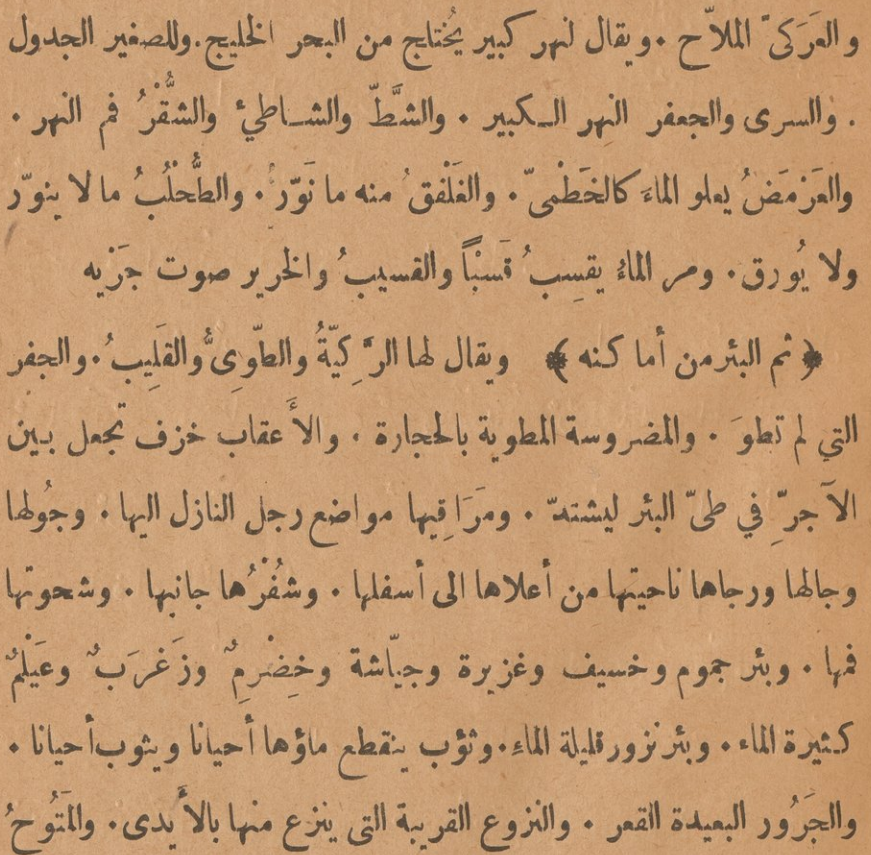 والعَرَكىّ الملاّح . ويقال لنهر كبير يُختلج من البحر الخليج . وللصغير الجدول
. والسرى والجعفر النهر الكبير . والشَّطّ والشاطئ والشُّفْرُ فم النهر .
والعَرْمَضُ يعلو الماءَ كالخَطْمىّ . والغَلْفقُ منه ما نَوّر . والطُّحْلُبُ ما لا ينوّر
ولا يُورق . ومر الماءُ يقسِبُ قَسبْاً والقسيبُ والخرير صوت جَرْيه
﴿ ثم البئر من أماكنه ﴾ ويقال لها الرَّكِيّةُ والطّوِىُّ والقَلِيبُ . والجفر
التي لم تطوَ . والمضروسة المطوية بالحجارة . والأعقاب خزف تجعل بين
الآجرّ في طىّ البئر ليشتدّ . ومَرَاقِيها مواضع رجل النازل اليها . وجُولها
وجالها ورجاها ناحيتها من أعلاها الى أسفلها . وشُفْرُها جانبها . وشحوتها
فمها . وبئر جموم وخسيف وغزيرة وجيّاشة وخِضْرِمٌ وزَغْرَبٌ وعَيْلَمٌ
كثيرة الماء . وبئر نزور قليلة الماءِ . وثؤب ينقطع ماؤها أحيانا ويثوب أحيانا .
والجَرُور البعيدة القعر . والنزوع القريبة التى ينزع منها بالأيدى . والمَتُوحُ